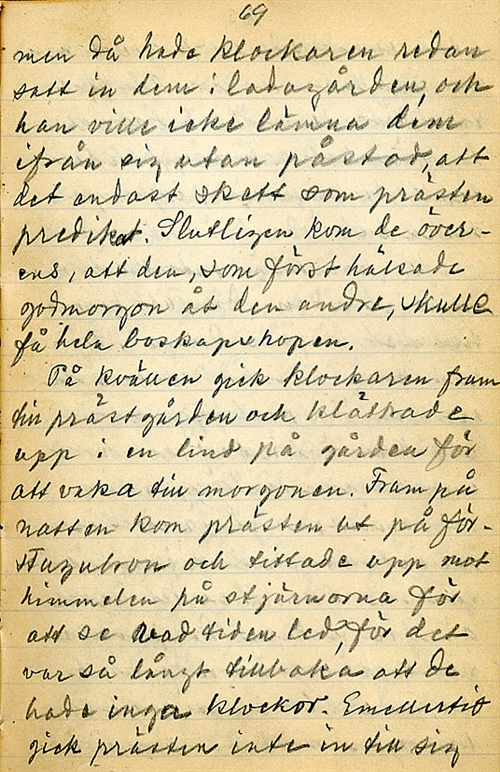 69
men då hade klockaren redan
satt in dem i ladugården, och
han ville icke lämna dem
ifrån sig utan påstod, att
det endast skett som prästen
predikat. Slutligen kom de över-
ens, att den, som först hälsade
godmorgon åt den andre, skulle
få hela boskapshopen.
På kvällen gick klockaren fram
till prästgården och klättrade
upp i en lind på gården för
att vaka till morgonen. Fram på
natten kom prästen ut på för-
stugubron och tittade upp mot
himmelen på stjärnorna för
att se vad tiden led, för det
var så långt tillbaka att de
hade inga klockor. Emellertid
gick prästen inte in till sig